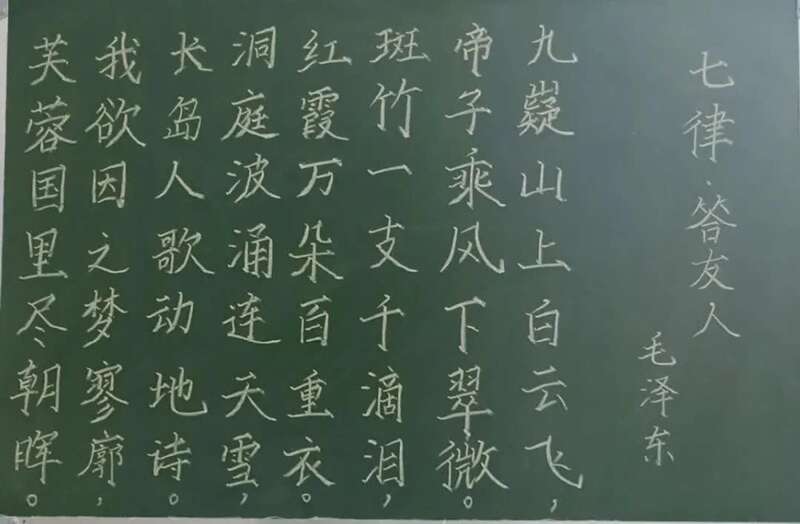 七律·答友人
毛泽东
九嶷山上白云飞，
帝子乘风下翠微。
斑竹一支千滴泪，
红霞万朵百重衣。
洞庭波涌连天雪，
长岛人歌动地诗。
我欲因之梦寥廓，
芙蓉国里尽朝晖。